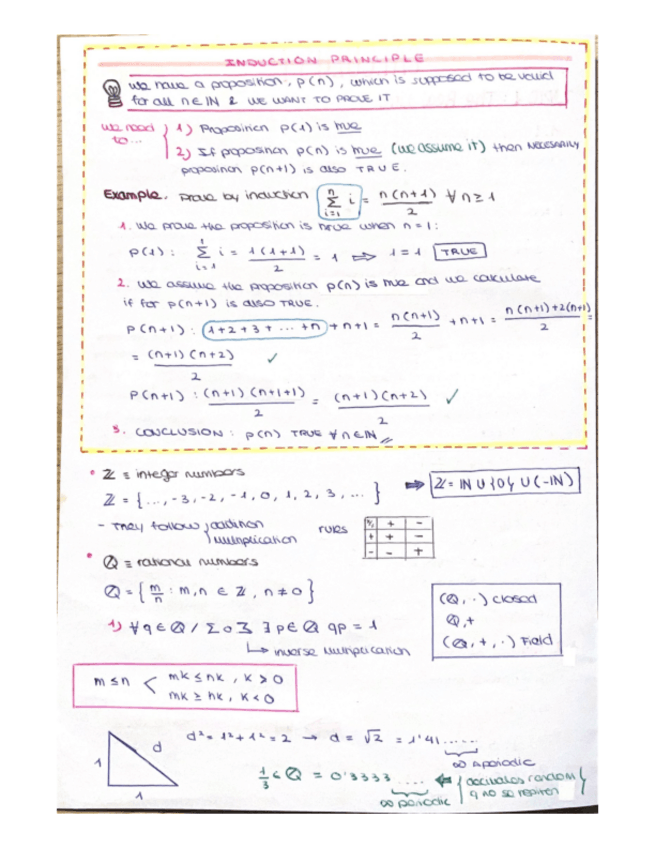 INDUCTION PRINCIPLE
We have a proposition, P(n), which is supposed to be valid
for all n ∈ IN & WE WANT TO PROVE IT
We need to...
1) Proposition P(1) is true
2) If proposition P(n) is true (we assume it) then NECESSARILY
proposition P(n+1) is also TRUE.
Example. Prove by induction ∑_{i=1}^{n} i = n(n+1)/2 ∀ n ≥ 1
1. We prove the proposition is true when n = 1:
P(1): ∑_{i=1}^{1} i = 1(1+1)/2 = 1 ⇒ 1 = 1 TRUE
2. We assume the proposition P(n) is true and we calculate
if for P(n+1) is also TRUE.
P(n+1): 1+2+3+ ... +n + n+1 = n(n+1)/2 + n+1 = n(n+1)+2(n+1)/2 =
= (n+1)(n+2)/2 ✓
P(n+1): (n+1)(n+1+1)/2 = (n+1)(n+2)/2 ✓
3. CONCLUSION: P(n) TRUE ∀ n ∈ IN //
• ℤ ≡ integer numbers
ℤ = {..., -3, -2, -1, 0, 1, 2, 3, ...} ⇒ ℤ = IN ∪ {0} ∪ (-IN)
- They follow addition
multiplication
rules
+ -
+ + -
- - +
• ℚ ≡ rational numbers
ℚ = { m/n : m, n ∈ ℤ, n ≠ 0 }
(ℚ, ·) closed
ℚ, +
(ℚ, +, ·) Field
1) ∀ q ∈ ℚ / {0} ∃ p ∈ ℚ qp = 1
↳ inverse multiplication
m ≤ n < mk ≤ nk, k > 0
mk ≥ nk, k < 0
1
d
1
d² = 1² + 1² = 2 → d = √2 = 1'41......
∞ Aperiodic
1/3 ∈ ℚ = 0'3333 .... ⇐ { decimales random
q no se repiten }
∞ periodic